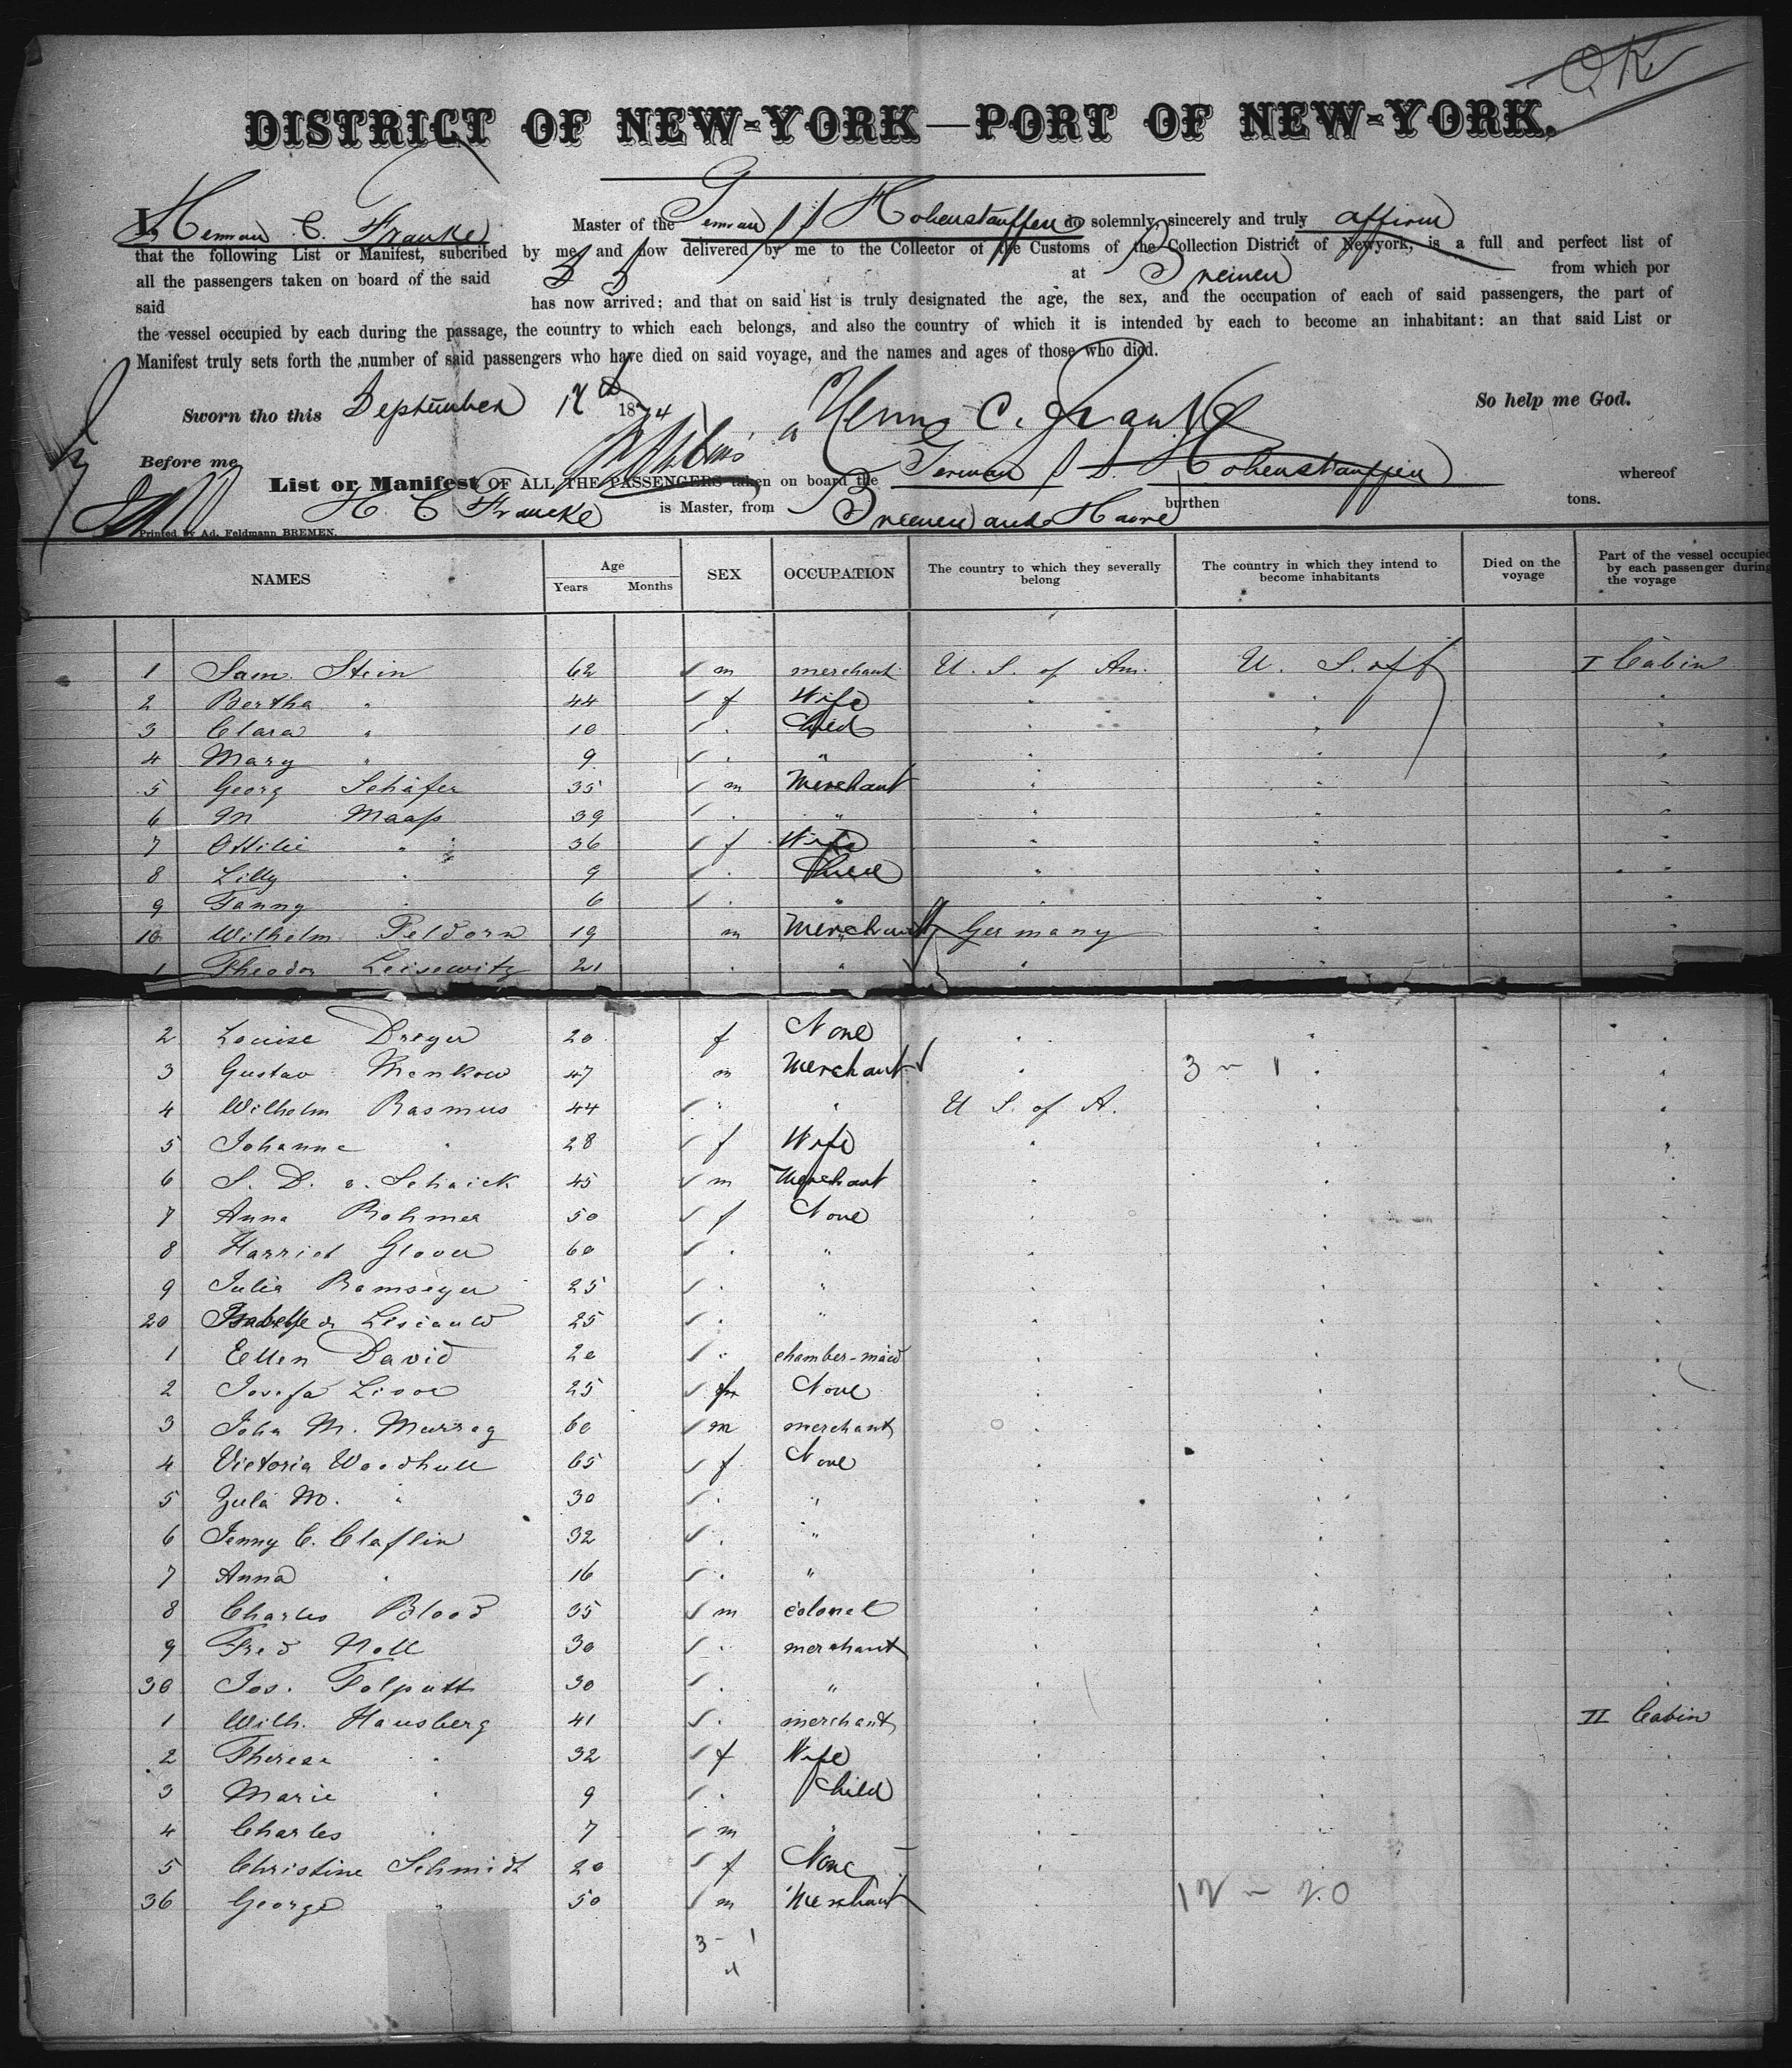 O.K.
DISTRICT OF NEW-YORK—PORT OF NEW-YORK.
I, Herman C. Franke Master of the German S S Hohenstauffen do solemnly, sincerely and truly affirm
that the following List or Manifest, subcribed by me, and now delivered by me to the Collector of the Customs of the Collection District of Newyork, is a full and perfect list of
all the passengers taken on board of the said S S at Bremen from which por
said has now arrived; and that on said list is truly designated the age, the sex, and the occupation of each of said passengers, the part of
the vessel occupied by each during the passage, the country to which each belongs, and also the country of which it is intended by each to become an inhabitant: an that said List or
Manifest truly sets forth the number of said passengers who have died on said voyage, and the names and ages of those who died.
Sworn tho this September 1874 Herm C. Franke So help me God.
Before me
List or Manifest OF ALL THE PASSENGERS taken on board the German S S. Hohenstauffen whereof
H. C. Francke is Master, from Bremen and Havre burthen tons.
Printed by Ad. Feldmann BREMEN.
NAMES Age Years Months SEX OCCUPATION The country to which they severally belong The country in which they intend to become inhabitants Died on the voyage Part of the vessel occupied by each passenger during the voyage
1 Sam. Stein 62 m merchant U. S. of Am. U. S. of A I Cabin
2 Bertha " 44 f Wife " " "
3 Clara " 10 " Child " " "
4 Mary " 9 " " " " "
5 Georg Schäfer 35 m Merchant " " "
6 M Maass 39 " " " " "
7 Ottilie " 36 f Wife " " "
8 Lilly " 9 " Child " " "
9 Fanny " 6 " " " " "
10 Wilhelm Peldorn 19 m Merchant Germany " "
1 Theodor Leisewitz 21 " " " " "
2 Louise Dreyer 20 f None " " "
3 Gustav Menkow 47 m Merchant " 3 - 1 " "
4 Wilhelm Rasmus 44 " " U S. of A. " "
5 Johanne " 28 f Wife " " "
6 S. D. v. Schaick 45 m Merchant " " "
7 Anna Rohmer 50 f None " " "
8 Harriet Glover 60 " " " " "
9 Julia Ramseyer 25 " " " " "
20 Isabella 25 " " " " "
1 Ellen David 20 " chamber-maid " " "
2 Josefa 25 f None " " "
3 John M. Murray 60 m merchant " " "
4 Victoria Woodhull 65 f None " " "
5 Zula M. " 30 " " " " "
6 Jenny C. Claflin 32 " " " " "
7 Anna " 16 " " " " "
8 Charles Blood 35 m colonel " " "
9 Fred Noll 30 " merchant " " "
30 Jos. Folputt 30 " " " " "
1 Wilh. Hausberg 41 " merchant " " II Cabin
2 Therese " 32 f Wife " " "
3 Marie " 9 " Child " " "
4 Charles " 7 m " " " "
5 Christine Schmidt 20 f None " " "
36 George " 50 m Merchant " 12 - 20 "
3 - 1